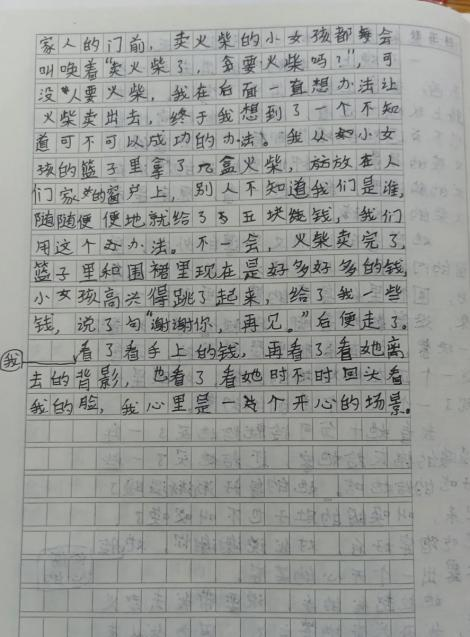 家人的门前，卖火柴的小女孩都会
叫唤着“卖火柴了，要火柴吗？”，可
没人要火柴，我在后面一直想办法让
火柴卖出去，终于我想到了一个不知
道可不可以成功的办法。我从小女
孩的篮子里拿了几盒火柴，放在人
们家的窗户上，别人不知道我们是谁，
随随便便地就给了五块钱，我们
用这个办法。不一会，火柴卖完了，
篮子里和围裙里现在是好多好多的钱，
小女孩高兴得跳了起来，给了我一些
钱，说了句“谢谢你，再见。”后便走了。
我看了看手上的钱，再看了看她离
去的背影，也看了看她时不时回头看
我的脸，我心里是一个开心的场景。